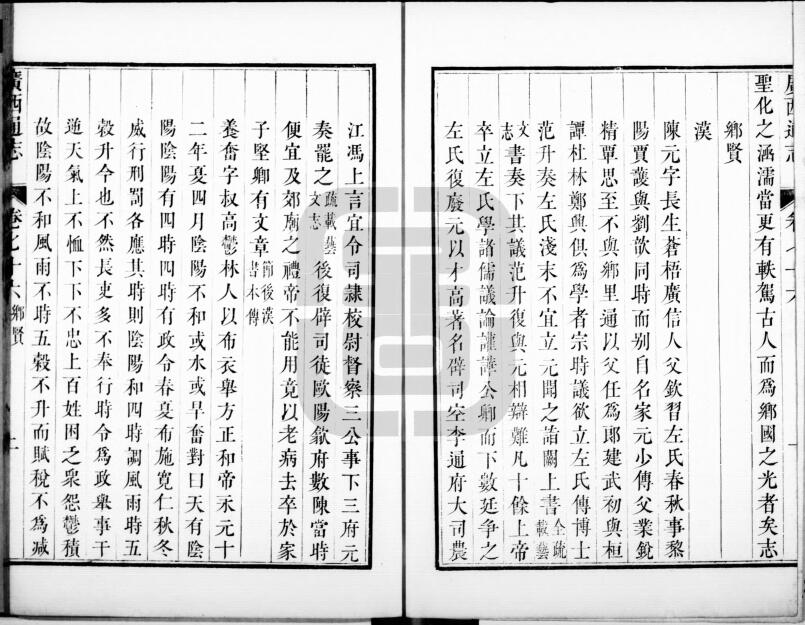 廣西通志
卷七十六
聖化之涵濡當更有軼駕古人而爲鄉國之光者矣志
鄉賢
漢
陳元字長生蒼梧廣信人父欽習左氏春秋事黎
陽賈護與劉歆同時而别自名家元少傳父業銳
精覃思至不與鄉里通以父任爲郎建武初與桓
譚杜林鄭興俱爲學者宗時議欲立左氏傳博士
范升奏左氏淺末不宜立元聞之詣闕上書全疏載藝
文志書奏下其議范升復與元相辯難凡十餘上帝
卒立左氏學諸儒議論讙譁公卿而下數廷争之
左氏復廢元以才高著名辟司空李通府大司農
江馮上言宜令司隸校尉督察三公事下三府元
奏罷之疏載藝文志後復辟司徒歐陽歙府數陳當時
便宜及郊廟之禮帝不能用竟以老病去卒於家
子堅卿有文章節後漢書本傳
養奮字叔高鬱林人以布衣舉方正和帝永元十
二年夏四月陰陽不和或水或旱奮對曰天有陰
陽陰陽有四時四時有政令春夏布施寛仁秋冬
威行刑罰各應其時則陰陽和四時調風雨時五
穀升今也不然長吏多不奉行時令爲政舉事干
逆天氣上不恤下下不忠上百姓困乏衆怨鬱積
故陰陽不和風雨不時五穀不升而賦稅不爲减
廣西通志
卷之七十六
鄉賢